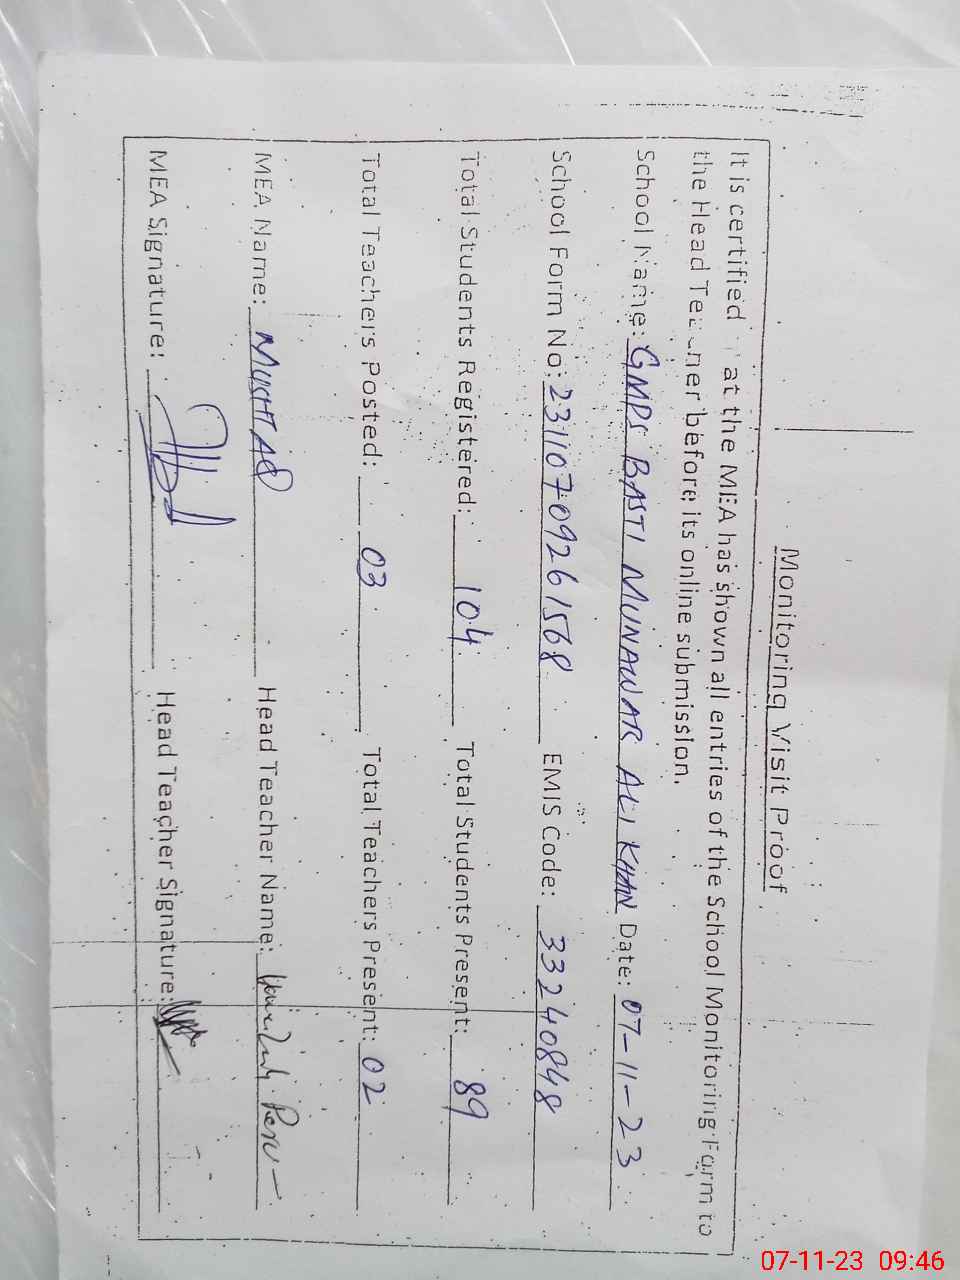 Monitoring Visit Proof
It is certified at the MEA has shown all entries of the School Monitoring Form to
the Head Teacher before its online submission.
School Name: GMPS BASTI MUNAWAR ALI KHAN Date: 07-11-23
School Form No: 23110709261568 EMIS Code: 33240848
Total Students Registered: 104 Total Students Present: 89
Total Teachers Posted: 03 Total Teachers Present: 02
MEA Name: MUSHTAQ Head Teacher Name:
MEA Signature: Head Teacher Signature:
07-11-23 09:46